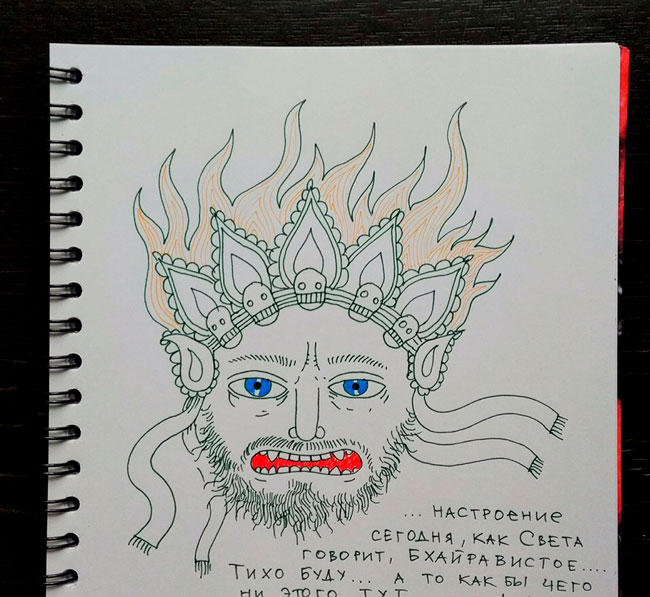 ... НАСТРОЕНИЕ
СЕГОДНЯ, КАК СВЕТА
ГОВОРИТ, БХАЙРАВИСТОЕ....
ТИХО БУДУ... А ТО КАК БЫ ЧЕГО
НИ ЭТОГО ТУТ